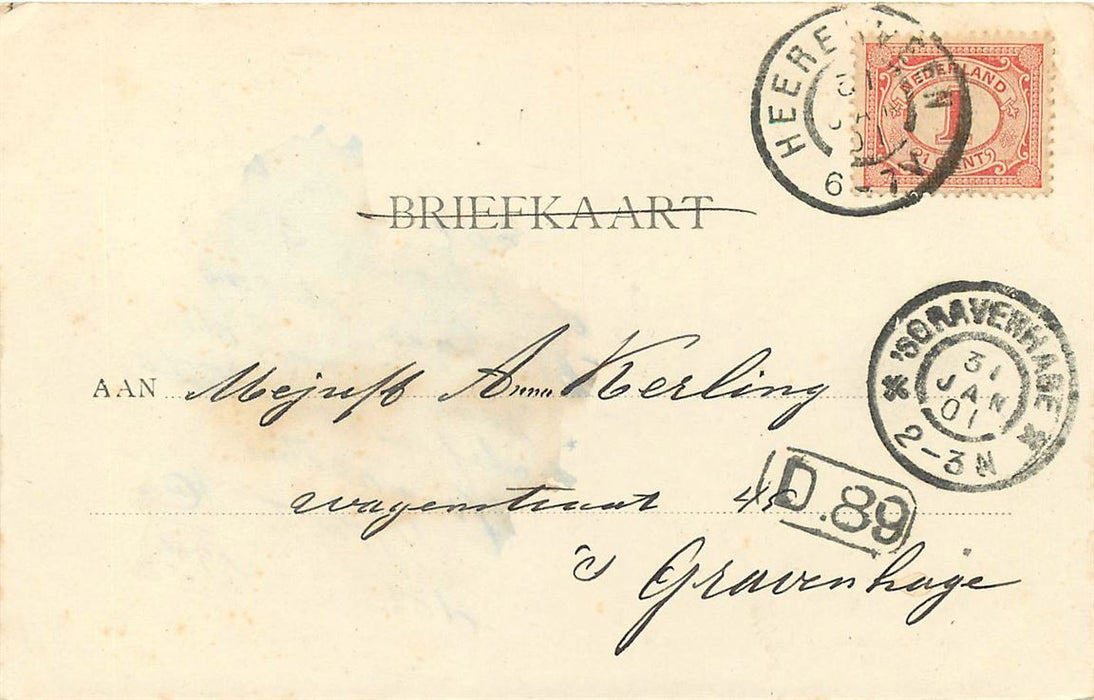 HEERENVEEN
31
JAN
01
6-7V
NEDERLAND
1
1 CENT
BRIEFKAART
'SGRAVENHAGE
31
JAN
01
2-3N
AAN Mejuff Anna Kerling
wagenstraat
D.89
's Gravenhage